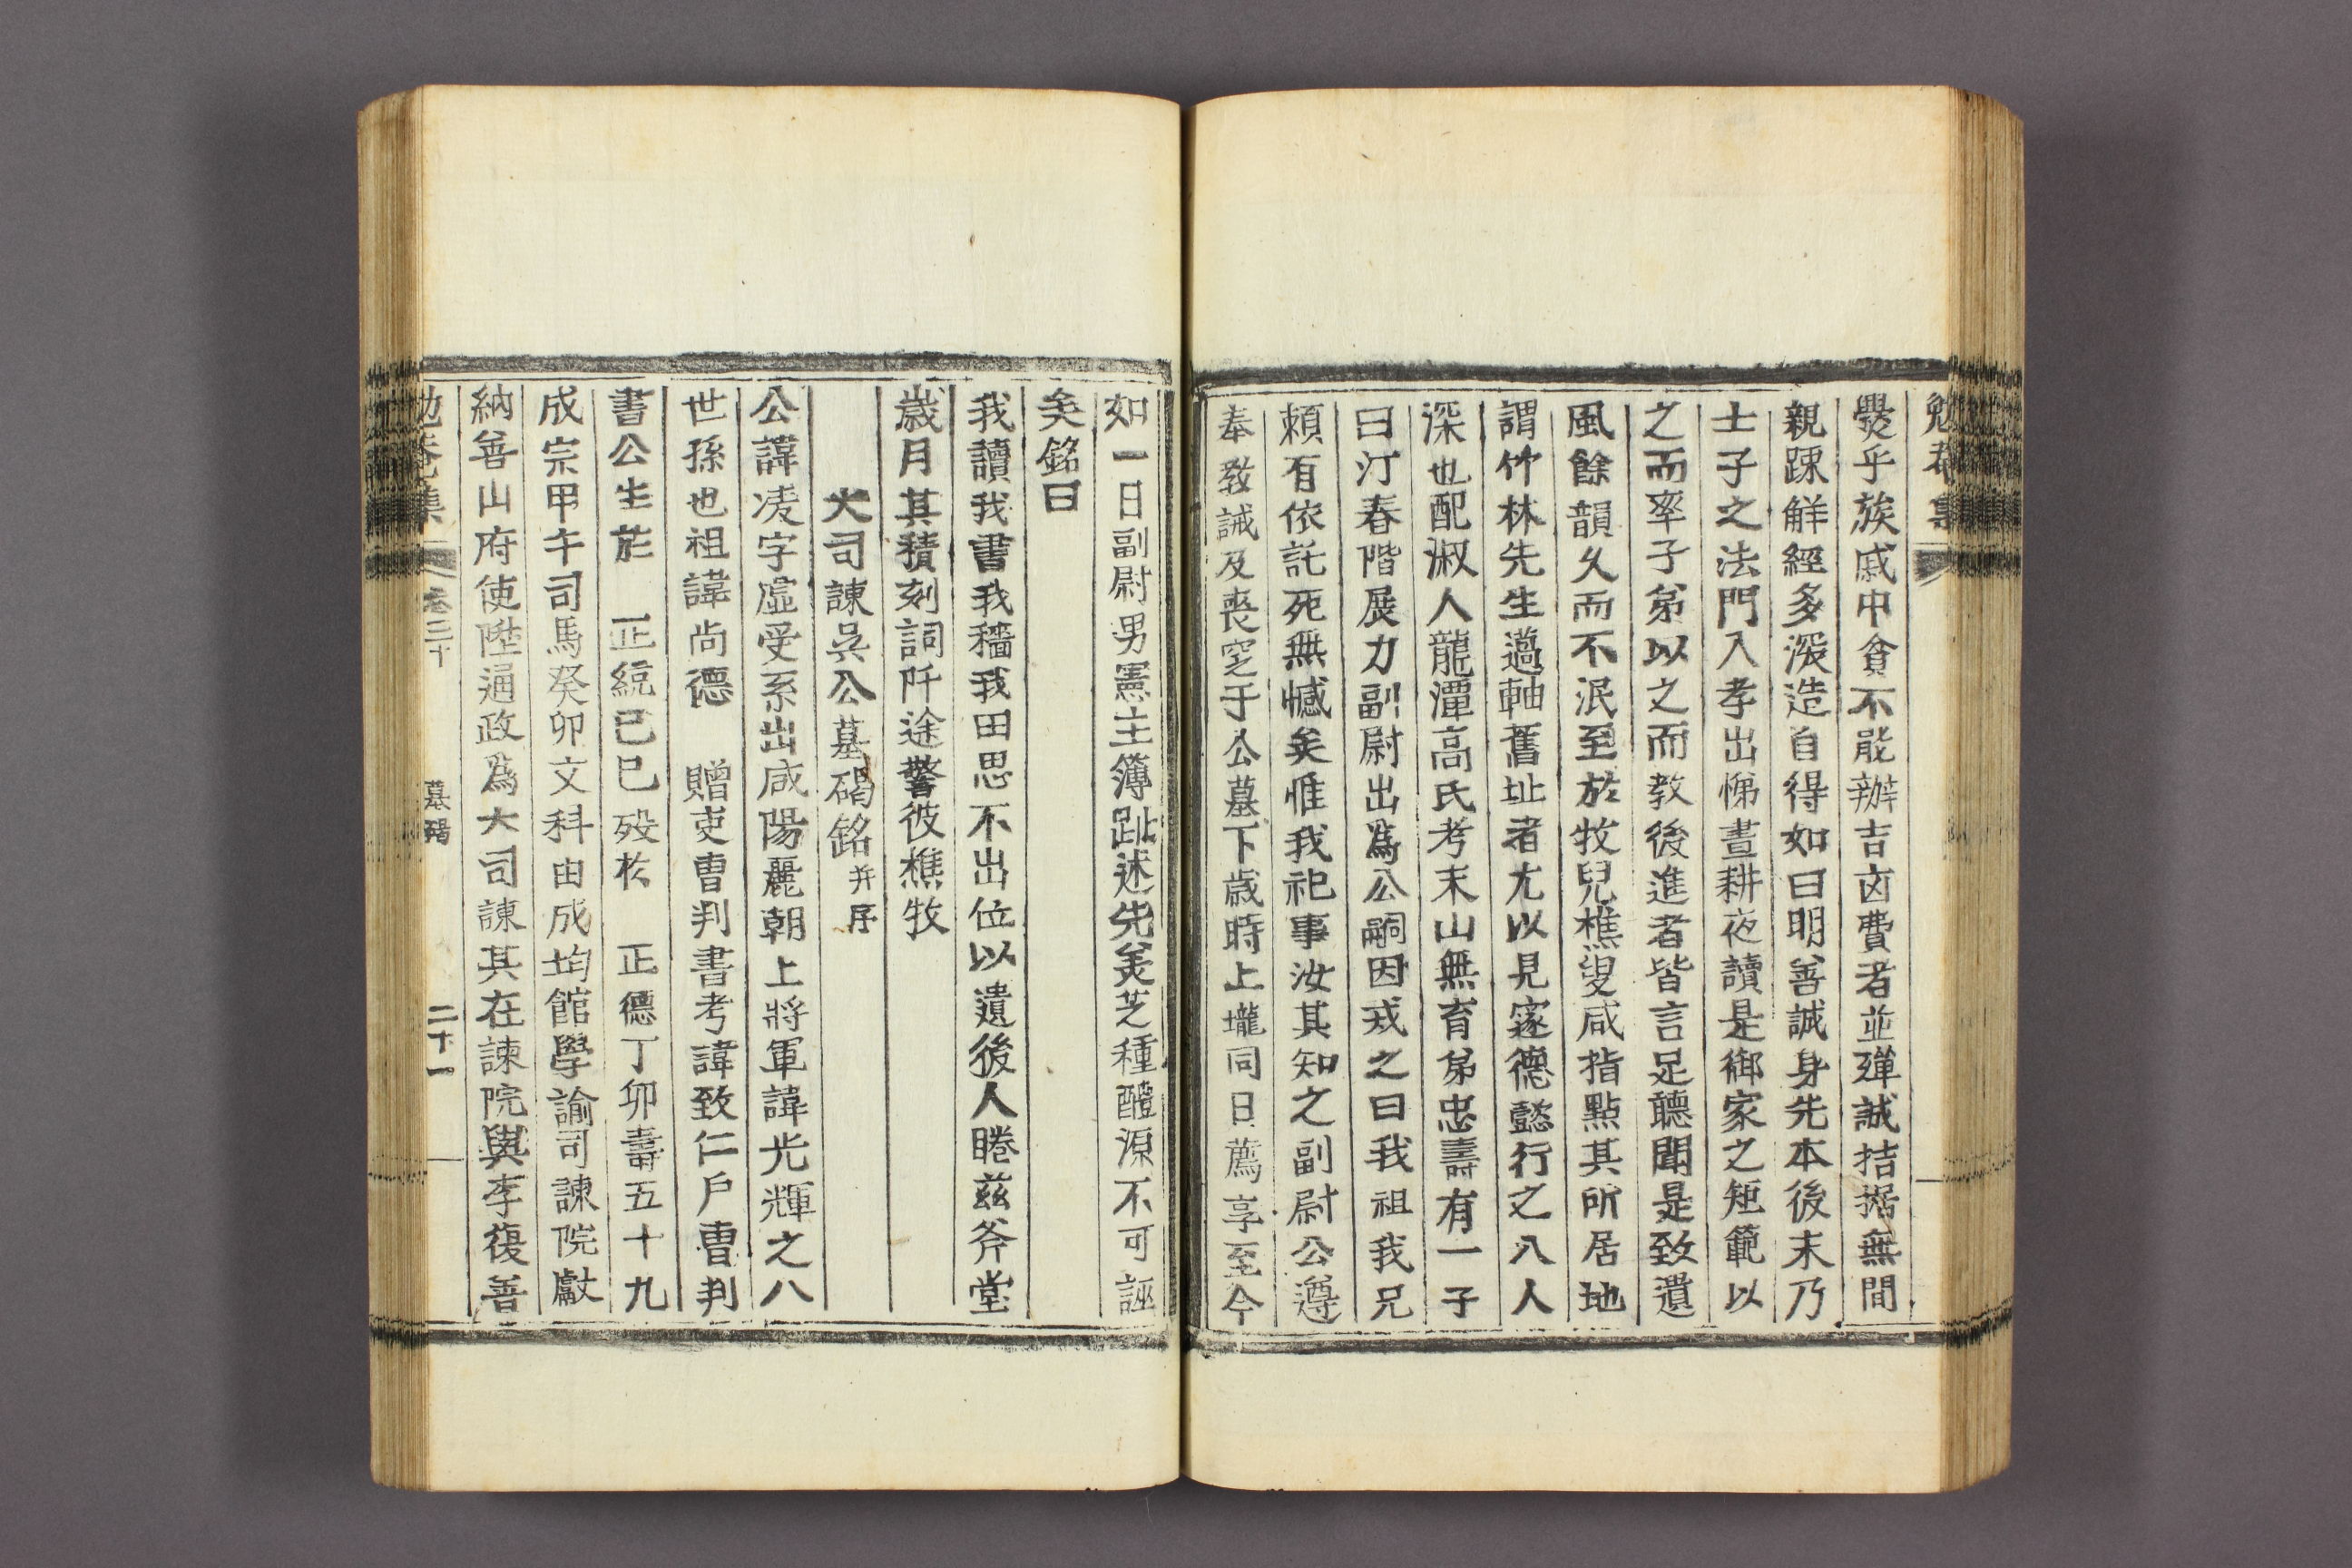 勉菴集
爨乎族戚中貧不能辦吉凶費者並殫誠拮据無間
親踈解經多深造自得如曰明善誠身先本後末乃
士子之法門入孝出悌晝耕夜讀是御家之矩範以
之而率子弟以之而教後進者皆言足聽聞是致遺
風餘韻久而不泯至於牧兒樵叟咸指點其所居地
謂竹林先生薖軸舊址者尤以見邃德懿行之入人
深也配淑人龍潭高氏考末山無育弟忠壽有一子
曰汀春階展力副尉出爲公嗣因戒之曰我祖我兄
賴有依託死無憾矣惟我祀事汝其知之副尉公遵
奉敎誡及喪窆于公墓下歲時上壠同日薦享至今
如一日副尉男憲主簿趾述先美芝種醴源不可誣
矣銘曰
我讀我書我穡我田思不出位以遺後人睠玆斧堂
歲月其積刻詞阡途警彼樵牧
大司諫吳公墓碣銘并序
公諱凌字虛受系出咸陽麗朝上將軍諱光輝之八
世孫也祖諱尙德 贈吏曹判書考諱致仁戶曹判
書公生於 正統己巳歿於 正德丁卯壽五十九
成宗甲午司馬癸卯文科由成均館學諭司諫院獻
納善山府使陞通政爲大司諫其在諫院與李復善
勉菴集 卷三十 墓碣 二十一